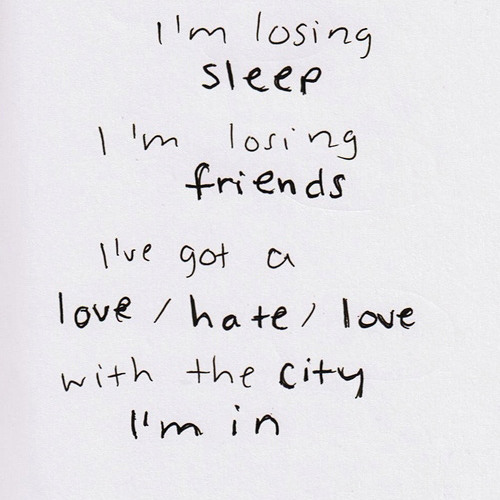 I'm losing
sleep
I'm losing
friends
I've got a
love / hate / love
with the city
I'm in